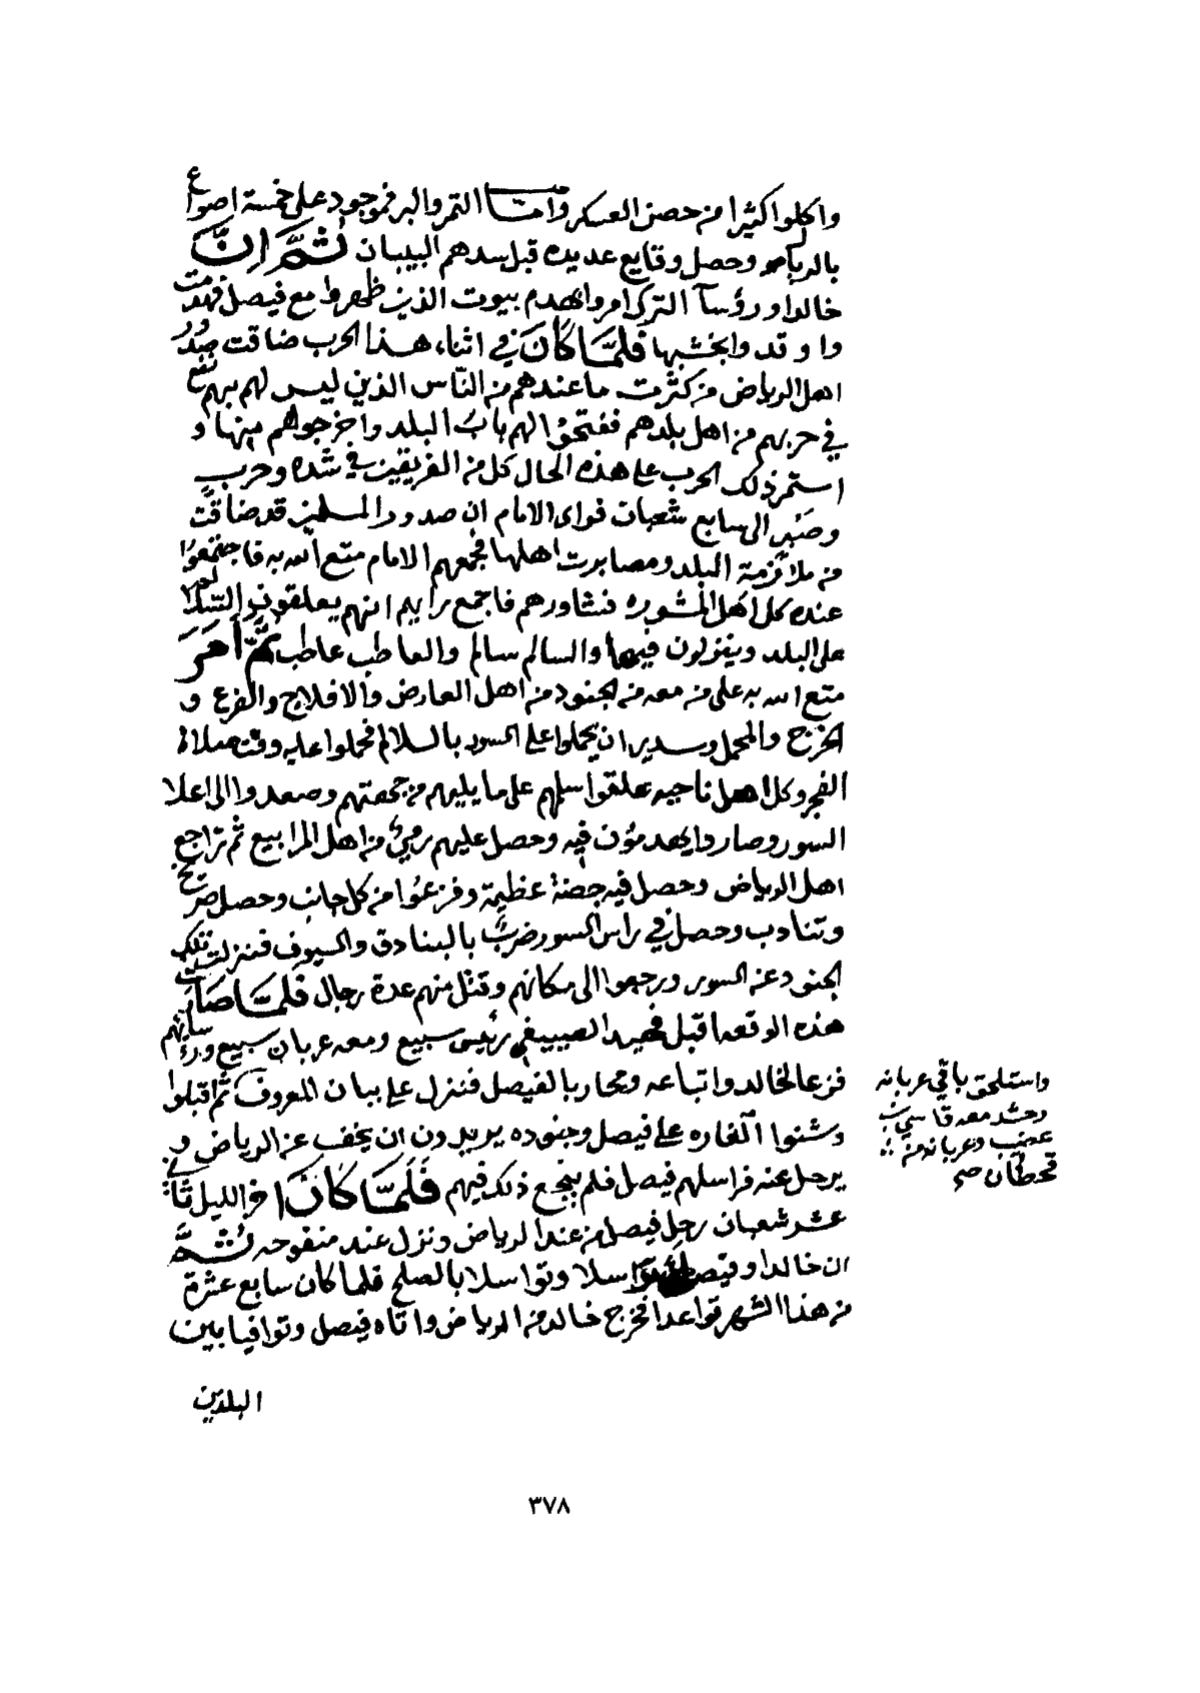 واكلوا كثيرا من حصن العسكر وامّا التمر والبر فموجود على خمسة اصواع
بالريال وحصل وقايع عديده قبل سدهم البيبان ثُمَّ اِنَّ
خالدا ورؤسآ الترك امروا بهدم بيوت الذين ظهروا مع فيصل فهدمت
واوقدوا بخشبها فَلمَّا كَانَ في اثناء هذا الحرب ضاقت صدور
اهل الرياض من كثرت ما عندهم من النّاس الذين ليس لهم بهم نفع
في حربهم من اهل بلدهم ففتحوا لهم باب البلد واخرجوهم منها و
استمر ذلك الحرب على هذه الحال كل من الفريقين في شده وحربٍ
وصَبْرٍ الى سابع شعبان فراى الامام ان صدور المسلمين قد ضاقت
من ملازمة البلد ومصابرت اهلها فجمعهم الامام متع الله به فاجتمعوا
عنده كل اهل المشوره فشاورهم فاجمع رايهم انهم يعلقون السلالم
على البلد وينزلون فيها والسالم سالم والعاطب عاطب ثمَّ أمَرَ
متع الله به على من معه من الجنود من اهل العارض والافلاج والفرع و
الخرج والمحمل وسدير ان يحملوا على السور بالسلالم فحملوا عليه وقت صلاة
الفجر وكل اهل ناحيه علقوا سلمهم على ما يليهم من جهتهم وصعدوا الى اعلا
السور وصاروا يهدمون فيه وحصل عليهم رميٌ من اهل المرابيع ثم تراجع
اهل الرياض وحصل فيه جضة عظيمة وفزعوا من كل جانب وحصل صريخ
وتنادب وحصل في راس السور ضربٌ بالبنادق والسيوف فنزلت تلك
الجنود عن السور ورجعوا الى مكانهم وقتل منهم عدة رجال فَلمَّا صَارت
هذه الوقعه اقبل فهيد الصييفي رئيس سبيع ومعه عربان سبيع ورؤسائهم
واستلحق باقي عربانه
وحشد معه قاسي بن
عضيب وعربانه من
قحطان صح
فزعا لخالد واتباعه ومحاربا لفيصل فنزل على بنبان المعروف ثم اقبلوا
وشنوا الغاره على فيصل وجنوده يريدون ان يخفف عن الرياض و
يرحل عنه فراسلهم فيصل فلم ينجع ذلك فيهم فَلَمَّا كَانَ اخر الليل ثاني
عشر شعبان رحل فيصل من عند الرياض ونزل عند منفوحه ثُمَّ
ان خالدا وفيصل تراسلا وتواسلا بالصلح فلما كان سابع عشرة
من هذا الشهر تواعدا فخرج خالد من الرياض واتاه فيصل وتوافيا بين
البلدين
٣٧٨